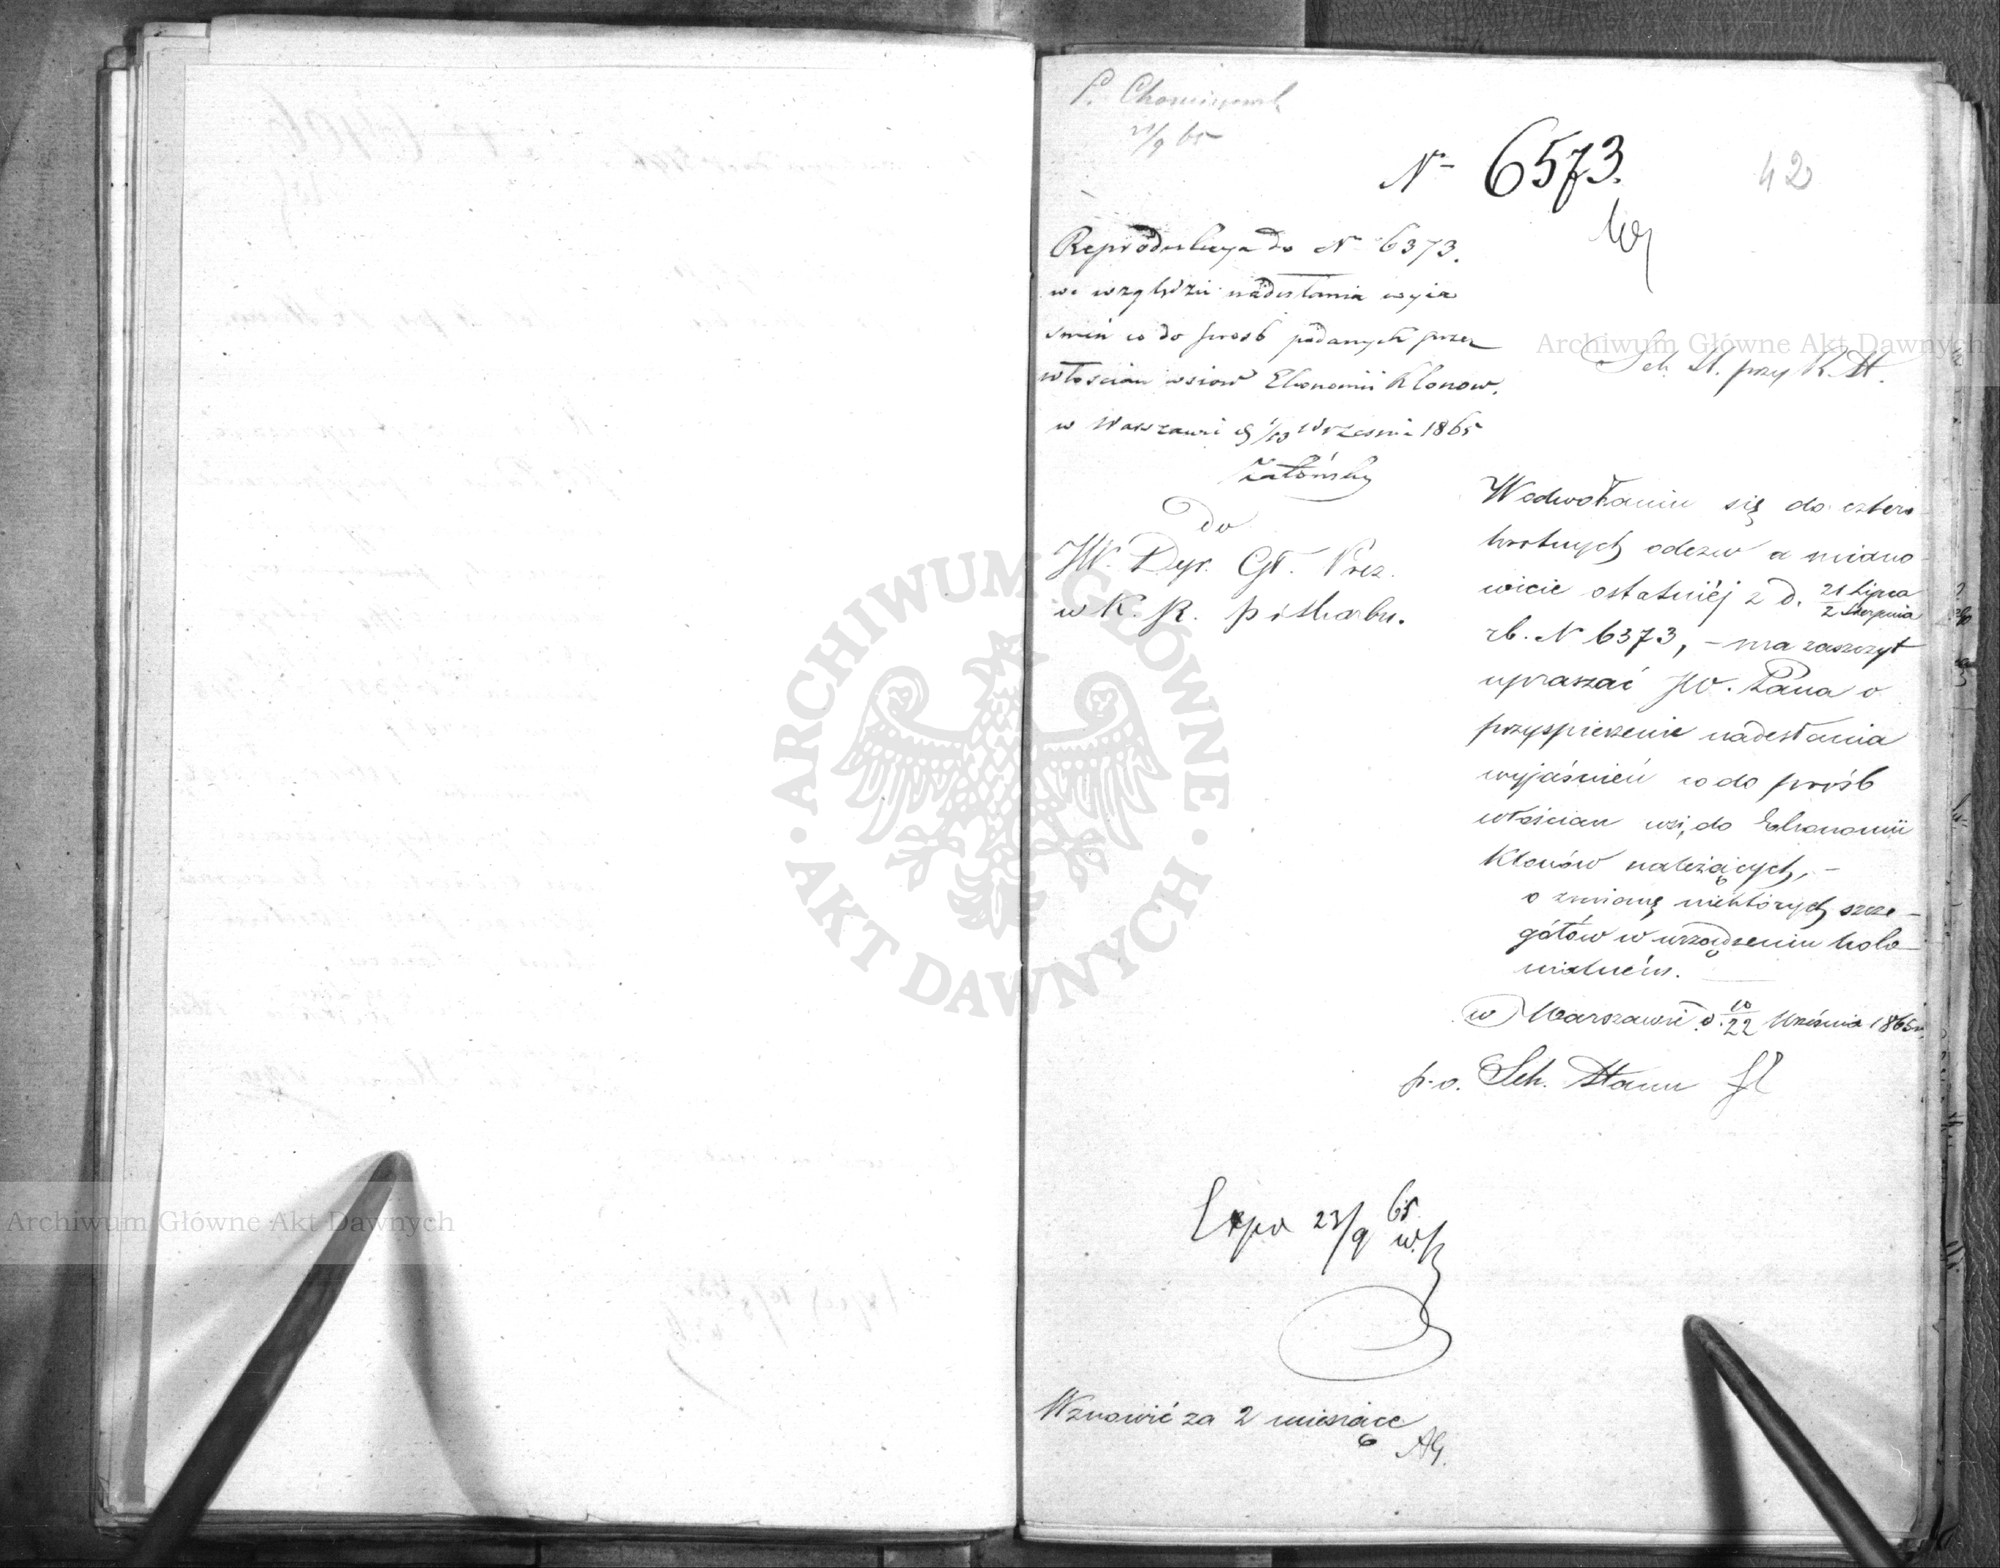 P.
21/9 65
N 6573.
42
Reprodukcya do N 6373.
we względzie nadesłania wyja
śnień co do prośb podanych przez
włościan wsiów Ekonomii Klonow.
w Warszawie d 1/13 Września 1865
Do
JW. Dyr. Gł. Prez.
w K. R. P i Skarbu.
Sek. St. przy R. St.
Wodwołaniu się do cztero
krotnych odezw a miano
wicie ostatniéj z d. 21 Lipca / 2 Sierpnia
rb. N 6373, – ma zaszczyt
upraszać JW. Pana o
przyspieszenie nadesłania
wyjaśnień co do prośb
włościan wsi, do Ekonomii
Klonów należących, –
o zmianę niektórych szcze-
gółów w urządzeniu kolo-
nialném.
w Warszawie d. 10/22 Września 1865 r.
p. o. Sek. Stanu
Expo 23/9 65
Wznowić za 2 miesiące
AG.
Archiwum Główne Akt Dawnych
Archiwum Główne Akt Dawnych
ARCHIWUM GŁÓWNE AKT DAWNYCH